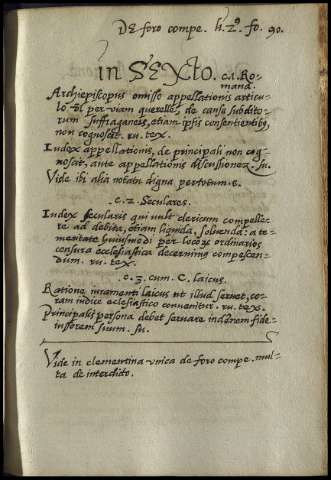 De foro compe. li. 2º. fo. 90.
in SEXTO. c.1. Ro-
mana.
Archiepiscopus omisse appellationis articu-
lo vel per viam querelle, de causis subdito-
rum suffraganeis, etiam ipsis consentientibus,
non cognoscit. ru. tex.
Iudex appellationis, de principali non cog-
noscit, ante appellationis discussionez. su.
Vide ibi alia notatu digna per totum. c.
c. 2. Seculares.
Iudex secularis qui vult clericum compelle-
re ad debita, etiam liquida, solvenda: a te-
meritate huiusmodi per locorum ordinarios
censura ecclesiastica decernimus compescen-
dum. ru. tex.
c. 3. cum. C. laicus.
Ratione iuramenti laicus ut illud servet, co-
ram iudice ecclesiastico convenitur. ru. tex.
Principalis persona debet servare indemnem fide-
iussorem suum. su.
Vide in clementina unica de foro compe. mul-
ta de interdito.